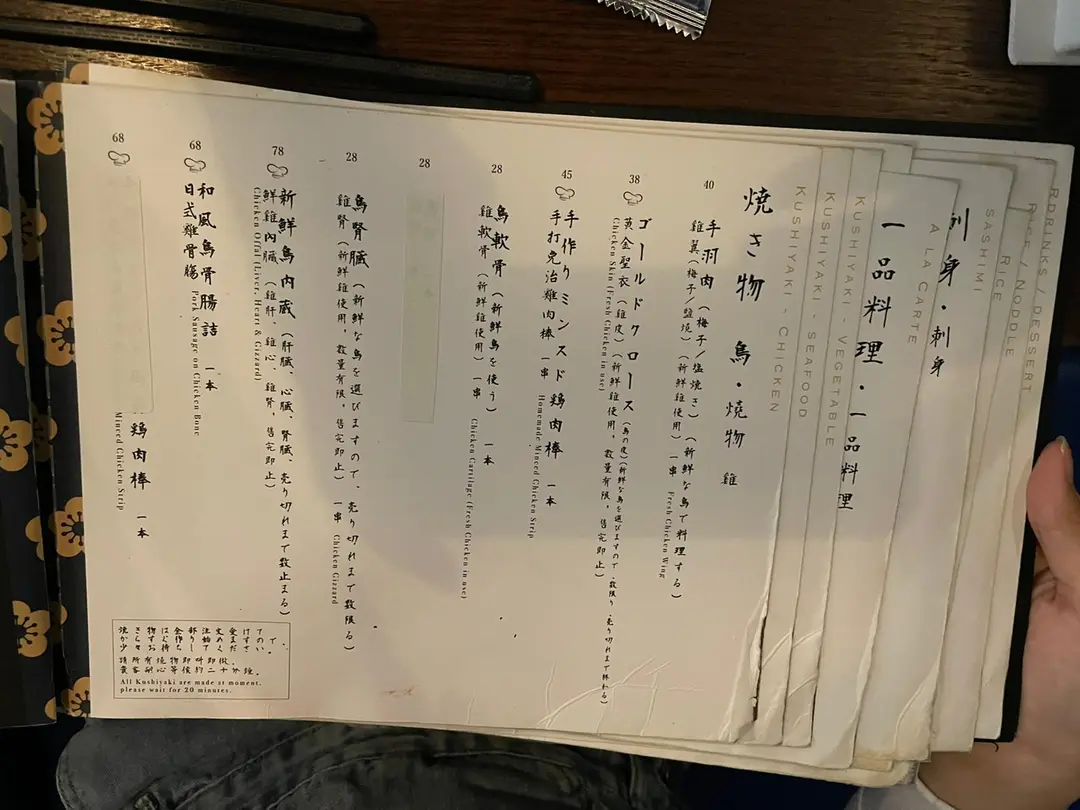 DRINKS / DESSERT
RICE / NODDLE
SASHIMI
刺身・刺身
A LA CARTE
一品料理・一品料理
KUSHIYAKI - VEGETABLE
KUSHIYAKI - SEAFOOD
KUSHIYAKI - CHICKEN
焼き物 鳥・燒物 雞
40
手羽肉 (梅子/塩焼き) (新鮮な鳥で料理する)
雞翼 (梅子/鹽燒) (新鮮雞使用) 一串 Fresh Chicken Wing
38
ゴールドクロース (鳥の皮) (新鮮な鳥を選びますので、数限り、売り切れまで終わる)
黄金聖衣 (雞皮) (新鮮雞使用，數量有限，售完即止)
Chicken Skin (Fresh Chicken in use)
45
手作りミンスド鶏肉棒 一本
手打免治雞肉棒 一串 Homemade Minced Chicken Strip
28
鳥軟骨 (新鮮鳥を使う) 一本
雞軟骨 (新鮮雞使用) 一串 Chicken Cartilage (Fresh Chicken in use)
28
28
鳥腎臓 (新鮮な鳥を選びますので、売り切れまで数限る)
雞腎 (新鮮雞使用，數量有限，售完即止) 一串 Chicken Gizzard
78
新鮮鳥内蔵 (肝臓、心臓、腎臓、売り切れまで数止まる)
鮮雞內臟 (雞肝、雞心、雞腎，售完即止)
Chicken Offal (Liver, Heart & Gizzard)
68
和風鳥骨腸詰 一本
日式雞骨腸 Pork Sausage on Chicken Bone
68
鶏肉棒 一本
Minced Chicken Strip
焼き物は全部注文受けて
から
請所有燒物即叫即做，
貴客耐心等候約二十分鐘。
All Kushiyaki are made at moment,
please wait for 20 minutes.